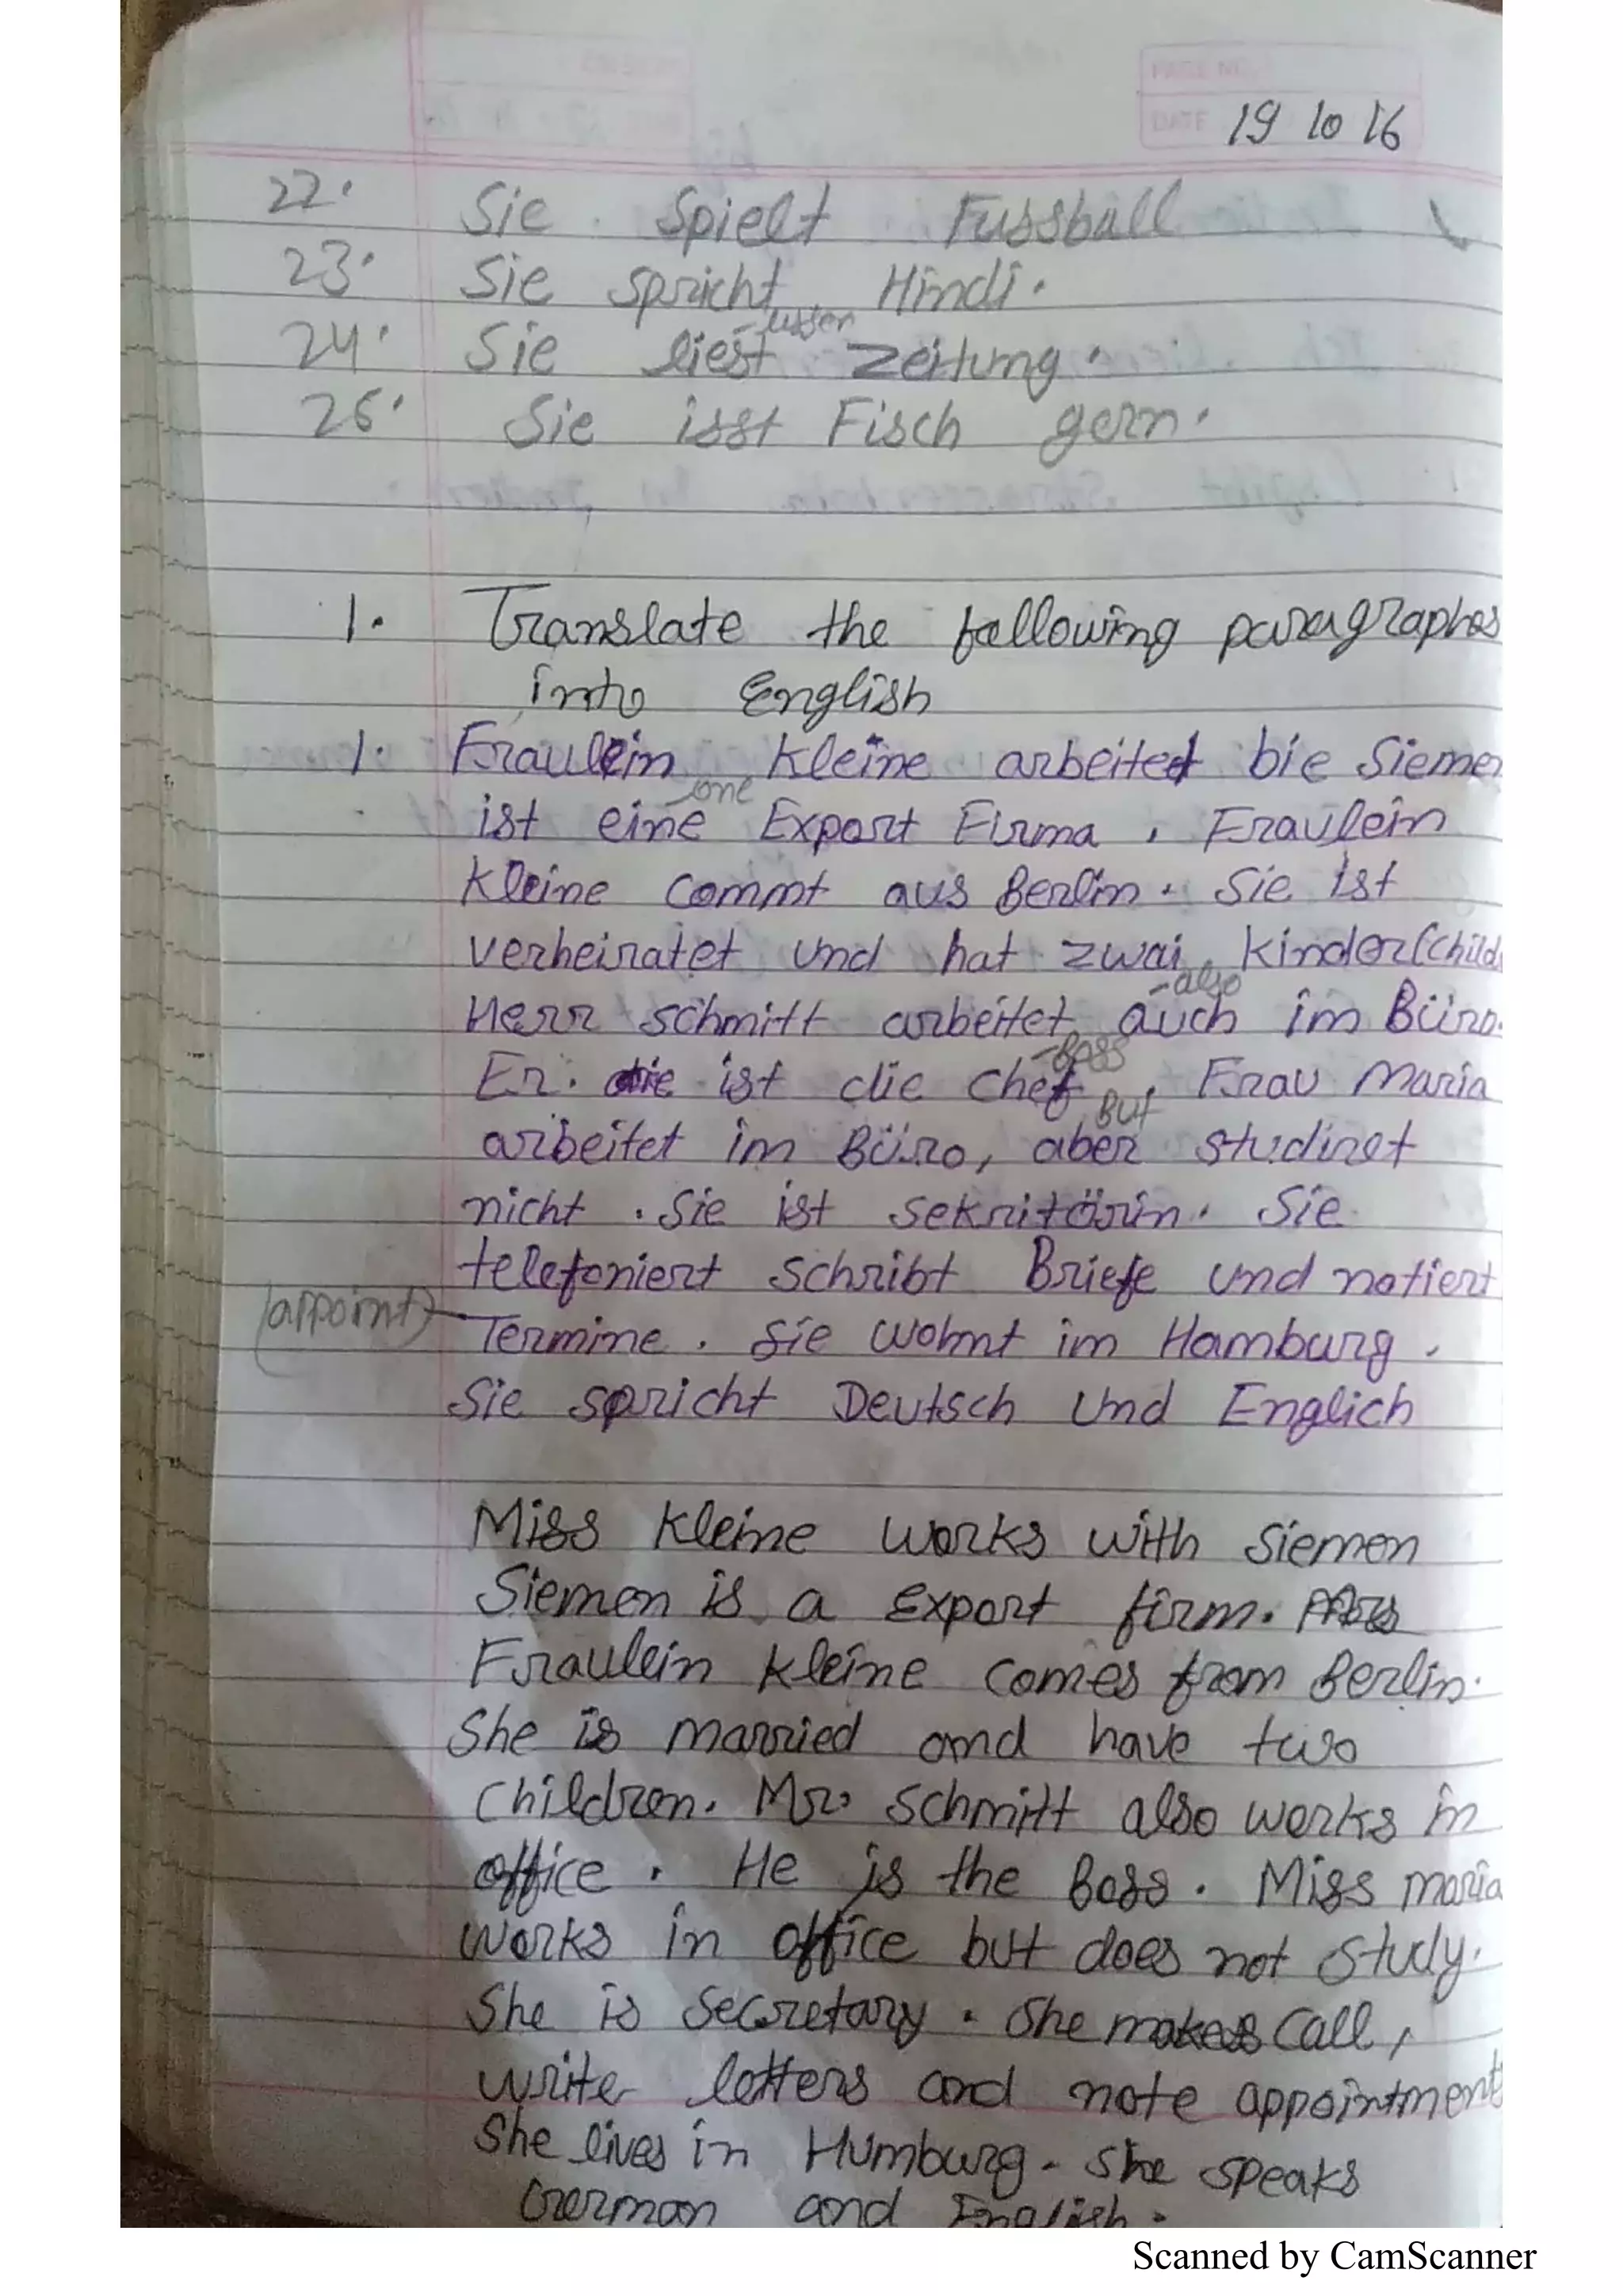 PAGE NO.
DATE 19 10 16
22. Sie Spielt Fussball
23. Sie spricht Hindi.
24. Sie liest Zeitung.
25. Sie isst Fisch gern.
1. Translate the following paragraphs
into English
1. Fraulein Kleine arbeitet bie Sieme
one
ist eine Export Firma . Fraulein
Kleine commt aus Berlin. Sie ist
verheiratet und hat zwai Kinder (Child
-also
Herr Schmitt arbeitet auch im Büro.
-Boss
Er. ist die Chef . Frau Maria
But
arbeitet im Büro, aber studiret
nicht . Sie ist Sekritörin. Sie
telefoniert schribt Briefe und notiert
(appoint) Termine . Sie wohnt im Hamburg .
Sie spricht Deutsch Und Englich
Miss Kleine works with Siemen
Siemen is a Export firm.
Fraulein Kleine comes from Berlin.
She is married and have two
Children. Mr. Schmitt also works in
office . He is the Boss . Miss maria
works in office but does not study.
She is Secretary . She makes Call,
write letters and note appointment
She lives in Humburg. She speaks
German and English.
Scanned by CamScanner